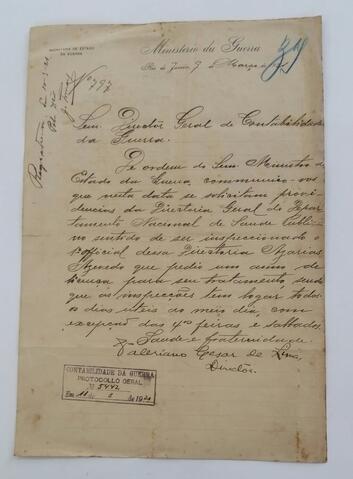 SECRETARIA DE ESTADO
DA GUERRA
Ministerio da Guerra
Rio de Janeiro, 9 de Março de
34
Nº 797
Snr. Director Geral de Contabilidade
da Guerra.
De ordem do Snr. Ministro de
Estado da Guerra, communico-vos
que nesta data se solicitam provi-
dencias da Directoria Geral do Depar-
tamento Nacional de Saude Publica
no sentido de ser inspeccionado o
1º official dessa Directoria Azarias
Azevedo que pediu um anno de
licença para seu tratamento, sendo
que as inspecções tem logar todos
os dias uteis ao meio dia, com
excepção das 4as feiras e sabbados.
Saude e fraternidade.
Valeriano Cesar de Lima,
Director.
CONTABILIDADE DA GUERRA
PROTOCOLLO GERAL
Nº 5442
Em 11 de 3 de 1921